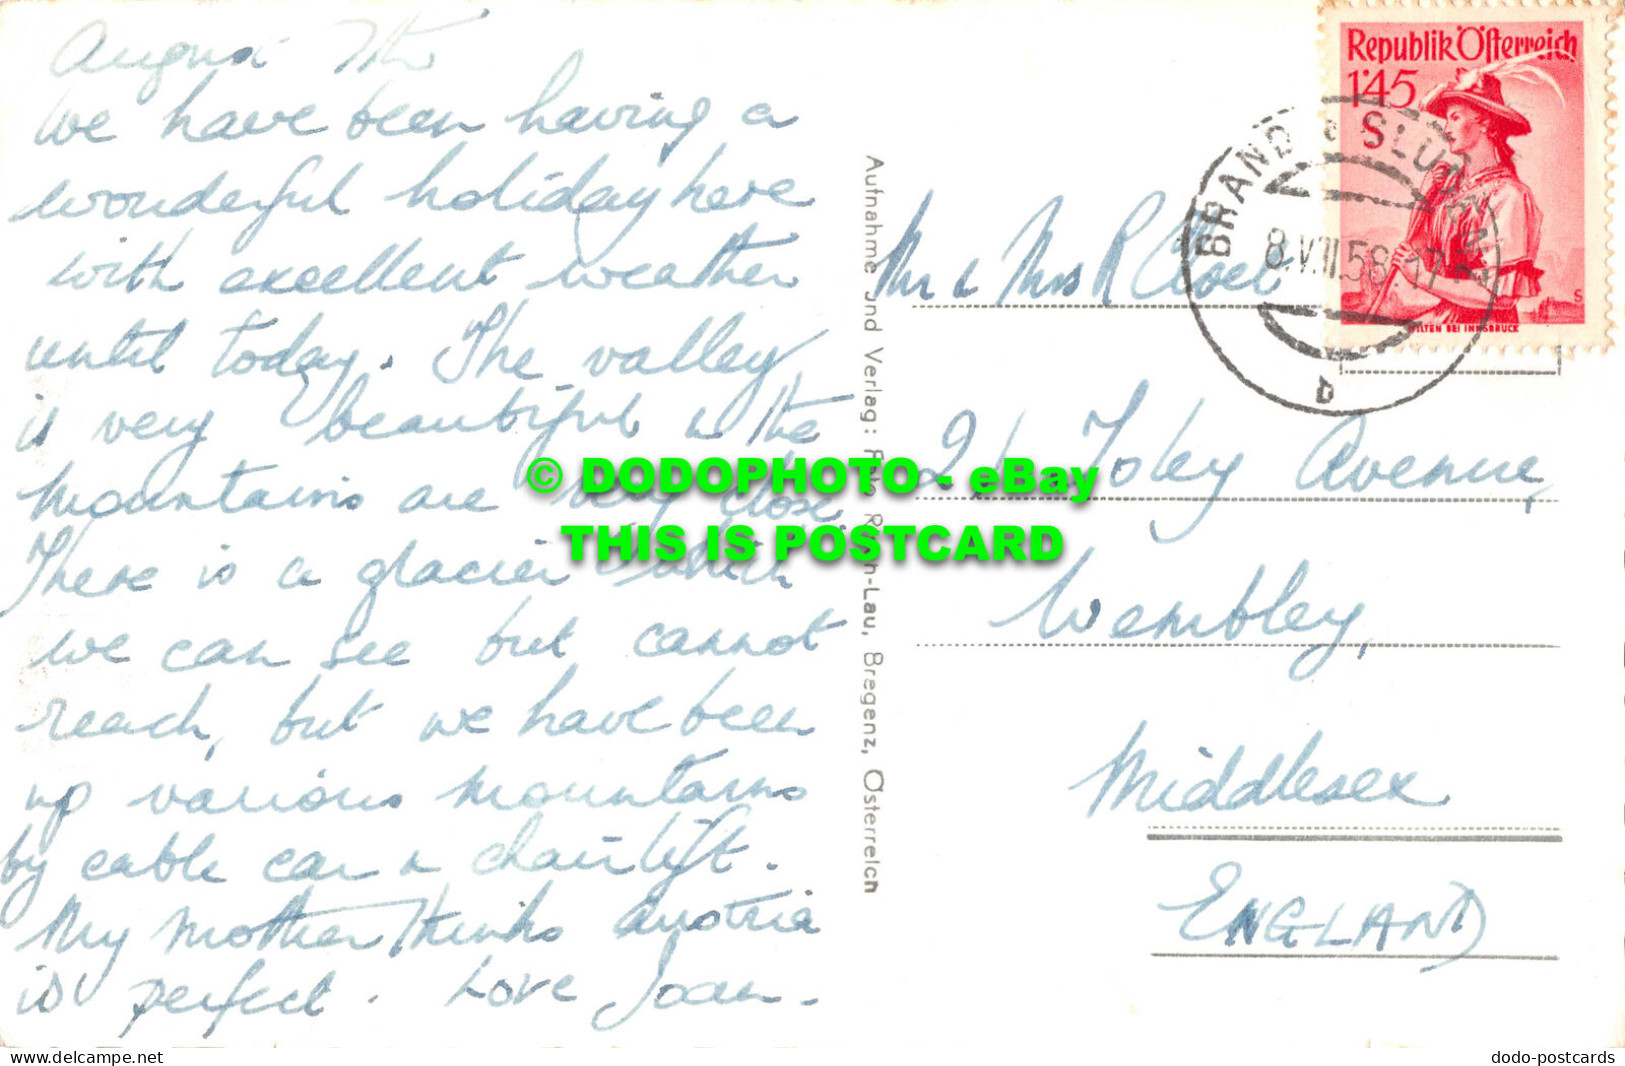 August 7th
We have been having a
wonderful holiday here
with excellent weather
until today. The valley
is very beautiful & the
mountains are very close.
There is a glacier which
we can see but cannot
reach, but we have been
up various mountains
by cable car & chairlift.
My mother thinks Austria
is perfect. Love Joan.
Aufnahme und Verlag: Risch-Lau, Bregenz, Österreich
Mr & Mrs R
21 Foley Avenue,
Wembley,
Middlesex
ENGLAND
Republik Österreich
1'45
S
WILTEN BEI INNSBRUCK
BRAND BLUDENZ
8.VIII.58.17
b
© DODOPHOTO - eBay
THIS IS POSTCARD
www.delcampe.net
dodo-postcards